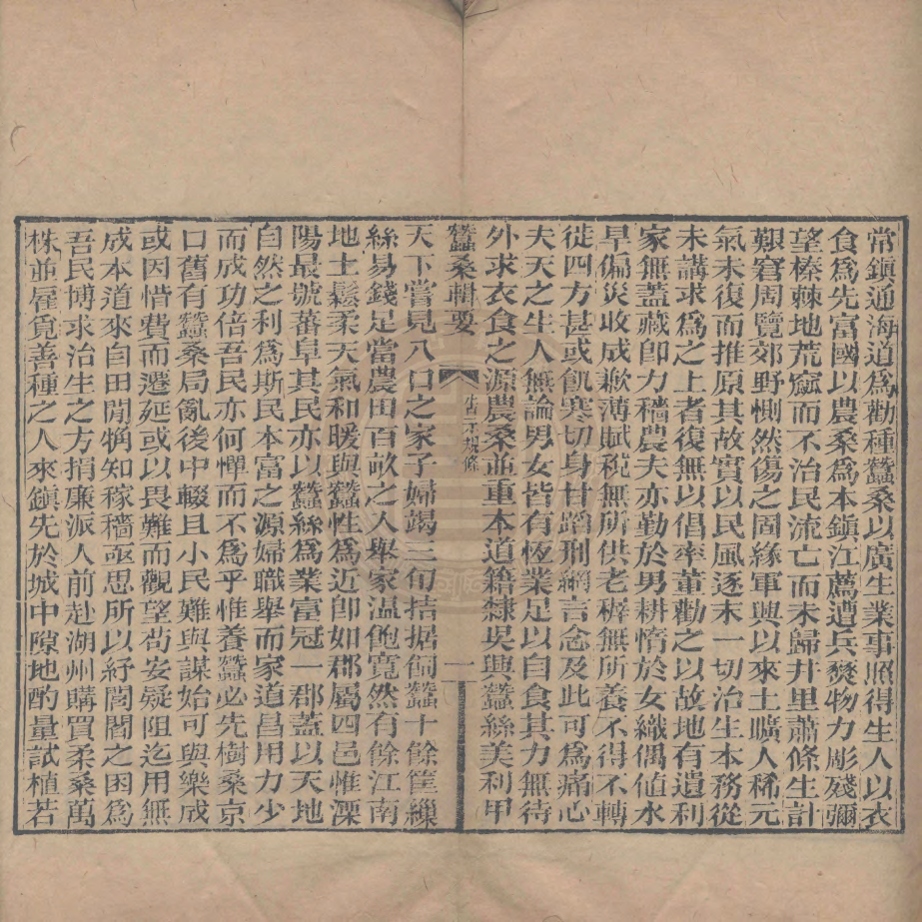 常鎮通海道爲勸種蠶桑以廣生業事照得生人以衣
食爲先富國以農桑爲本鎮江薦遭兵燹物力彫殘彌
望榛棘地荒窳而不治民流亡而未歸井里蕭條生計
艱窘周覽郊野惻然傷之固緣軍興以來土曠人稀元
氣未復而推原其故實以民風逐末一切治生本務從
未講求爲之上者復無以倡率董勸之以故地有遺利
家無蓋藏卽力穡農夫亦勤於男耕惰於女織偶値水
旱偏災收成歉薄賦稅無所供老穉無所養不得不轉
徙四方甚或飢寒切身甘蹈刑網言念及此可爲痛心
夫天之生人無論男女皆有恆業足以自食其力無待
外求衣食之源農桑並重本道籍隸吳興蠶絲美利甲
蠶桑輯要
一
天下嘗見八口之家子婦竭三旬拮据飼蠶十餘筐繅
絲易錢足當農田百畝之入舉家温飽寬然有餘江南
地土鬆柔天氣和暖與蠶性爲近卽如郡屬四邑惟溧
陽最號蕃阜其民亦以蠶絲爲業富冠一郡蓋以天地
自然之利爲斯民本富之源婦職舉而家道昌用力少
而成功倍吾民亦何憚而不爲乎惟養蠶必先樹桑京
口舊有蠶桑局亂後中輟且小民難與謀始可與樂成
或因惜費而遷延或以畏難而觀望苟安疑阻迄用無
成本道來自田間觕知稼穡亟思所以紓閭閻之困爲
吾民博求治生之方捐廉派人前赴湖州購買柔桑萬
株並雇覓善種之人來鎮先於城中隙地酌量試植若